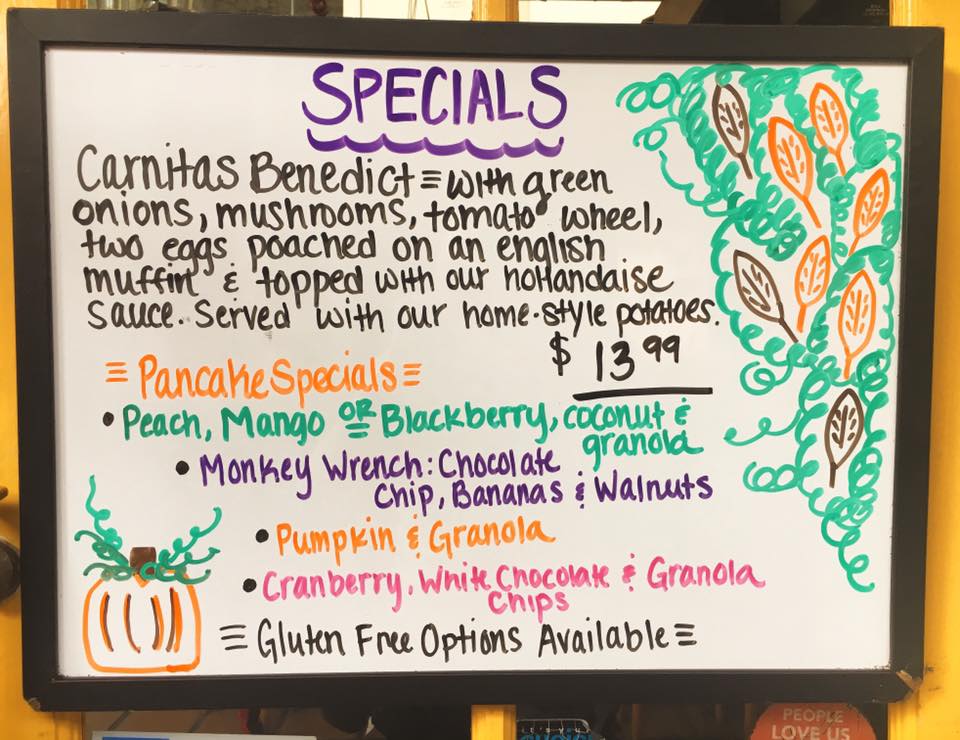 SPECIALS
Carnitas Benedict = with green
onions, mushrooms, tomato wheel,
two eggs poached on an english
muffin & topped with our hollandaise
sauce. Served with our home-style potatoes.
$ 13.99
= Pancake Specials =
• Peach, Mango OR Blackberry, coconut &
granola
• Monkey Wrench: Chocolate
Chip, Bananas & Walnuts
• Pumpkin & Granola
• Cranberry, White Chocolate & Granola
Chips
= Gluten Free Options Available =
PEOPLE
LOVE US